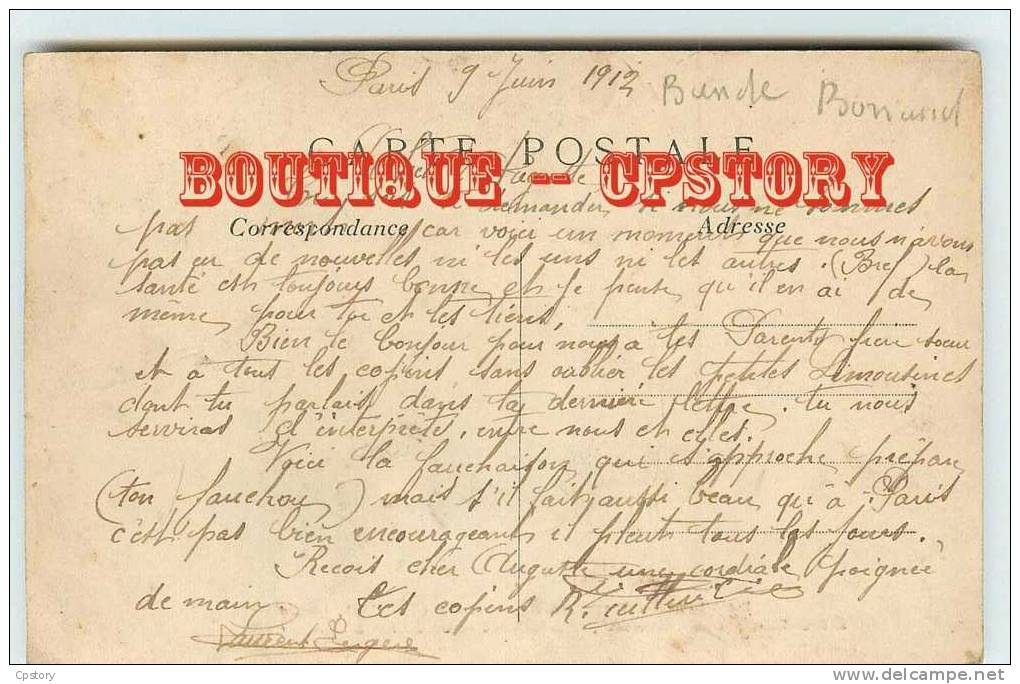 Paris 9 Juin 1912
CARTE POSTALE
BOUTIQUE -- CPSTORY
demander si nous ne sommes
Correspondance
Adresse
pas car voici un moment que nous n'avons
pas eu de nouvelles ni les uns ni les autres. (Bref) la
santé est toujours bonne et je pense qu'il en ai de
même pour toi et les tiens,
Bien le bonjour pour nous a tes Parents soeur
et a tous les copins sans oublier les petites Limousines
dont tu parlais dans ta dernière lettre, tu nous
serviras d'interprète, entre nous et elles.
Voici la fauchaison qui s'approche prépare
(ton fauchou) mais s'il fait aussi beau qu'à Paris
c'est pas bien encourageant il pleut tous les jours.
Recois cher Auguste une cordiale poignée
de main. Tes copins R.
Laurent
Cpstory
delcampe.net